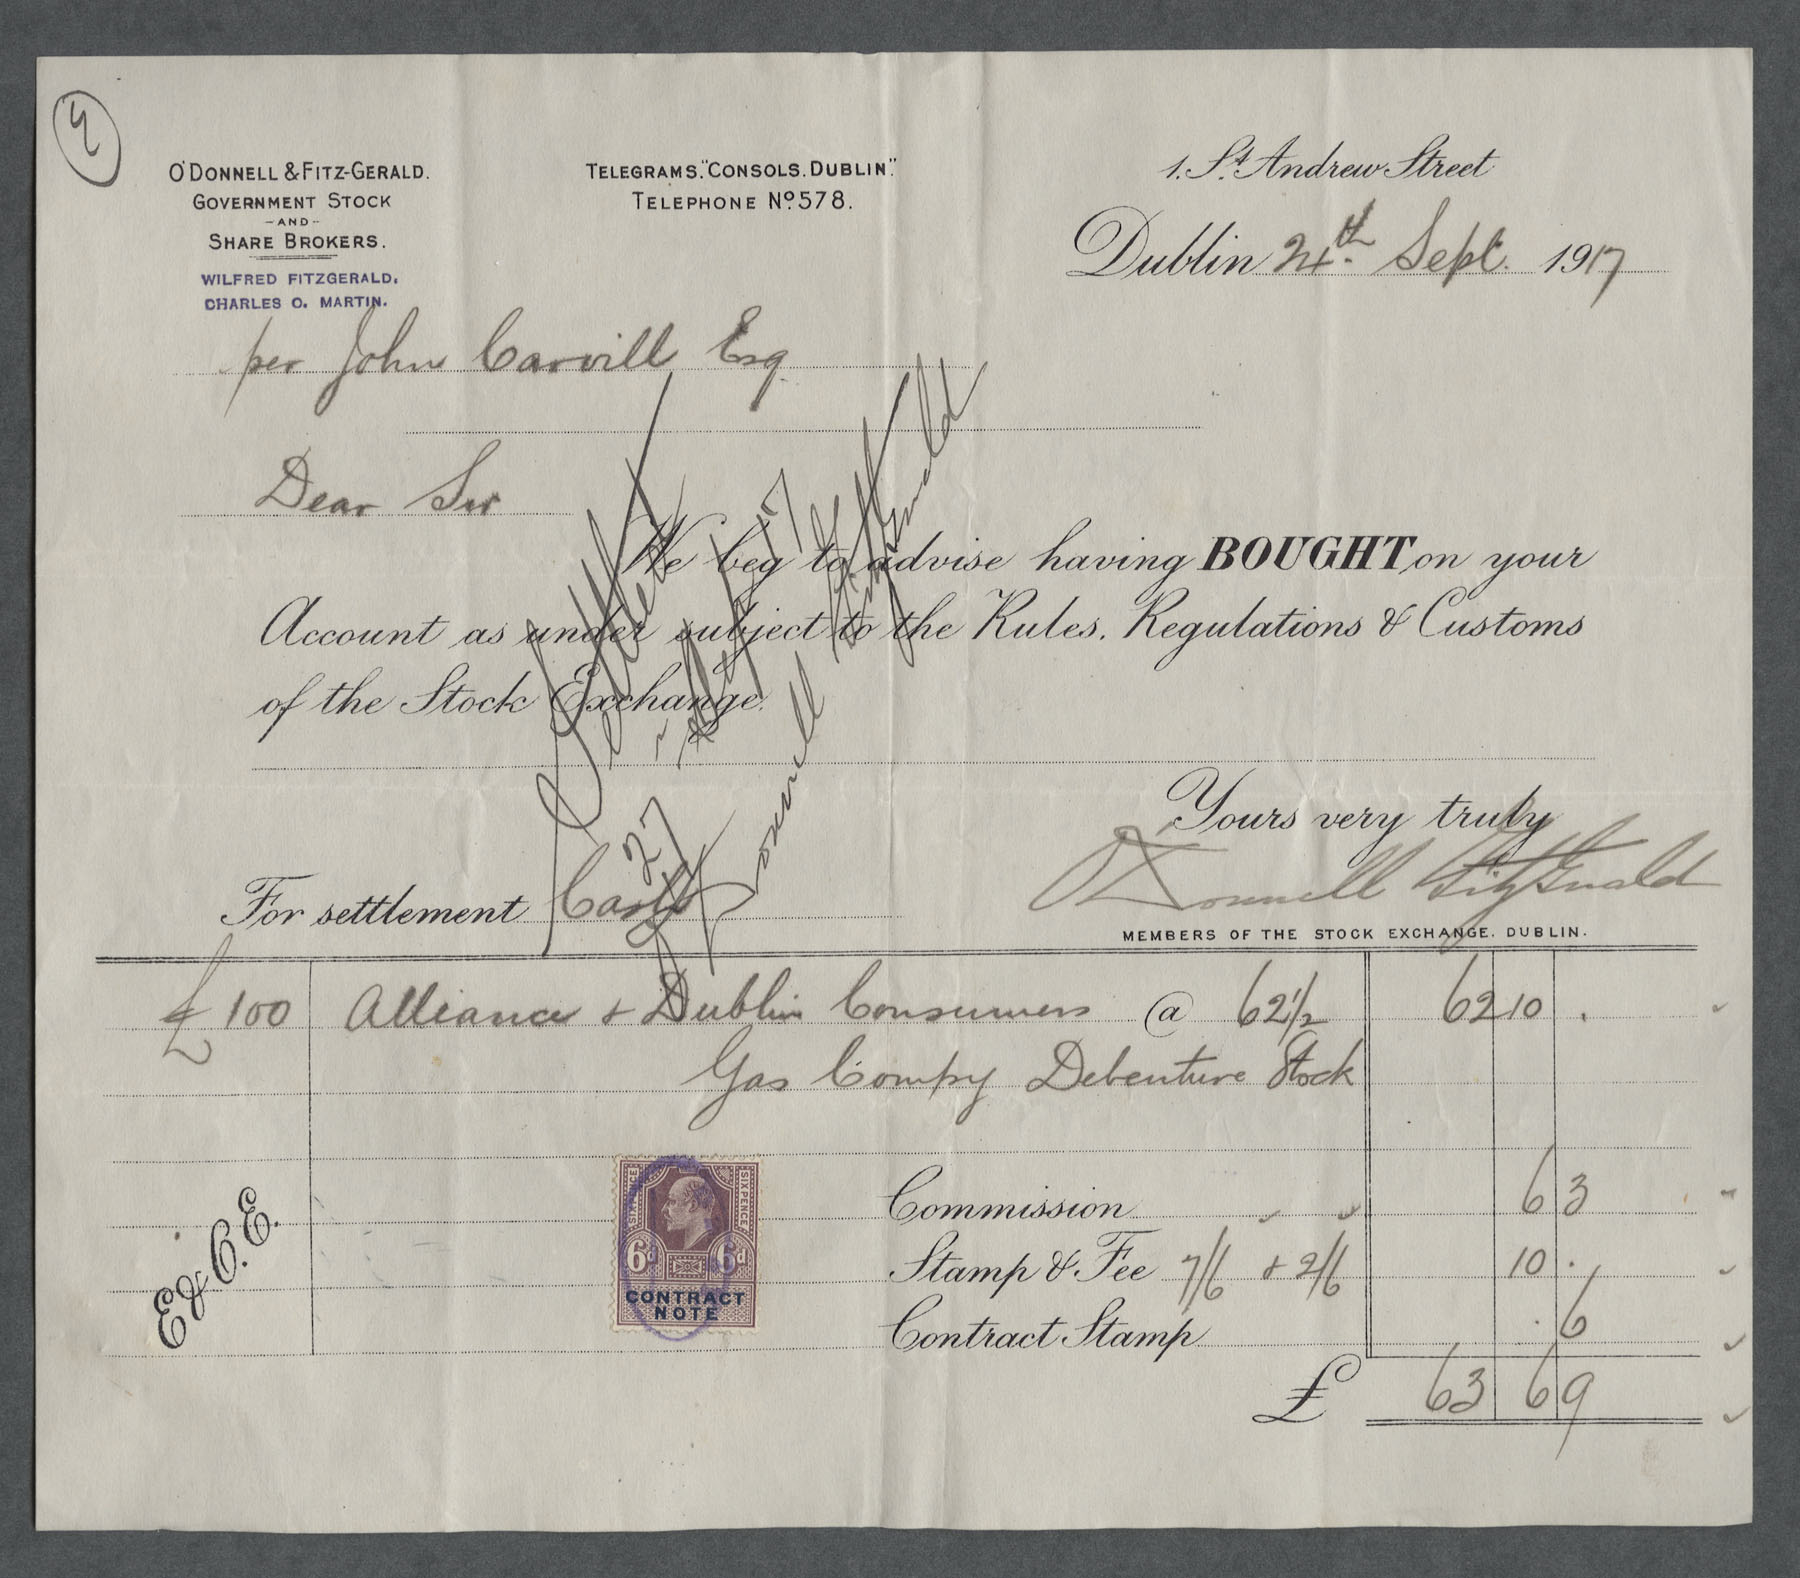 O'DONNELL & FITZ-GERALD.
GOVERNMENT STOCK
-AND-
SHARE BROKERS.
WILFRED FITZGERALD.
CHARLES O. MARTIN.
TELEGRAMS. "CONSOLS. DUBLIN".
TELEPHONE No. 578.
1. St. Andrew Street
Dublin 24th. Sept. 1917
per John Carvill Esq.
Dear Sir
We beg to advise having BOUGHT on your
Account as under subject to the Rules. Regulations & Customs
of the Stock Exchange.
Yours very truly
O'Donnell FitzGerald
MEMBERS OF THE STOCK EXCHANGE. DUBLIN.
For settlement Cash
£100 Alliance & Dublin Consumers @ 62 1/2 62 10 .
Gas Compy Debenture Stock
Commission 6 3
Stamp & Fee 7/6 & 2/6 10 .
Contract Stamp . 6
£ 63 6 9
E & O. E.
SIXPENCE SIXPENCE
6d 6d
CONTRACT
NOTE
27
O'Donnell FitzGerald